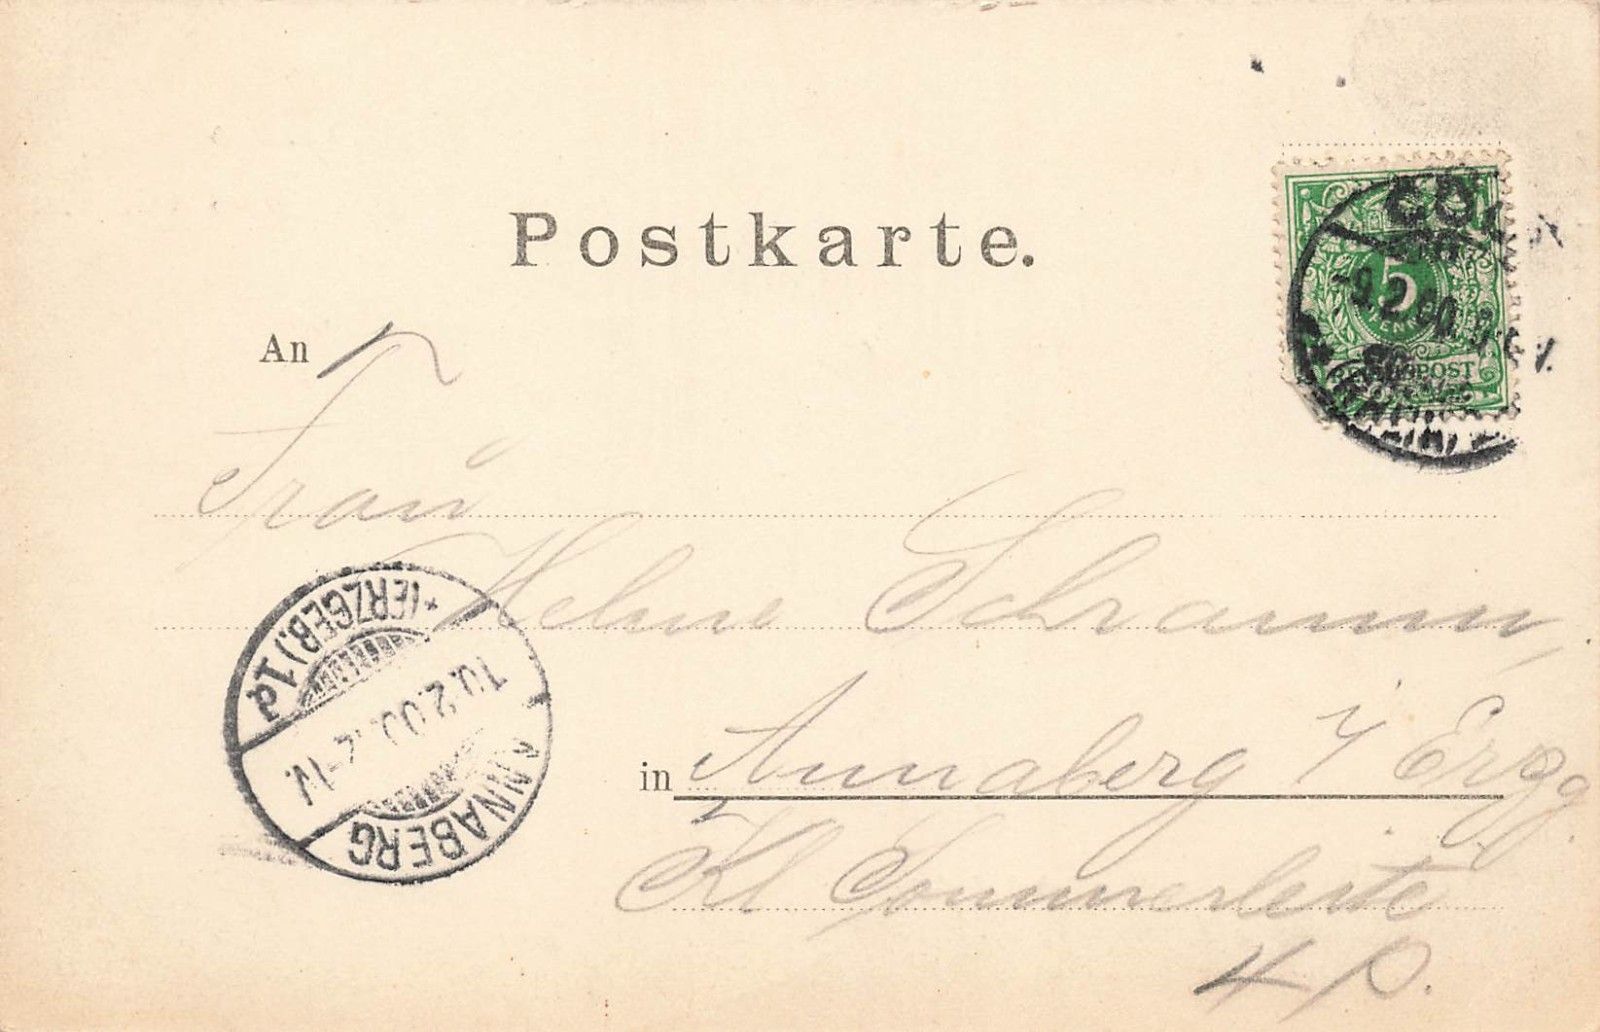 Postkarte.
5
REICHSPOST
-9.2.00.
(RHEIN)
An
Frau
Helene Schramm,
in Annaberg i/Erzg.
Kl Sommerleite
4 P.
ANNABERG
10.2.00.
-1V.
*(ERZGEB.) 1d